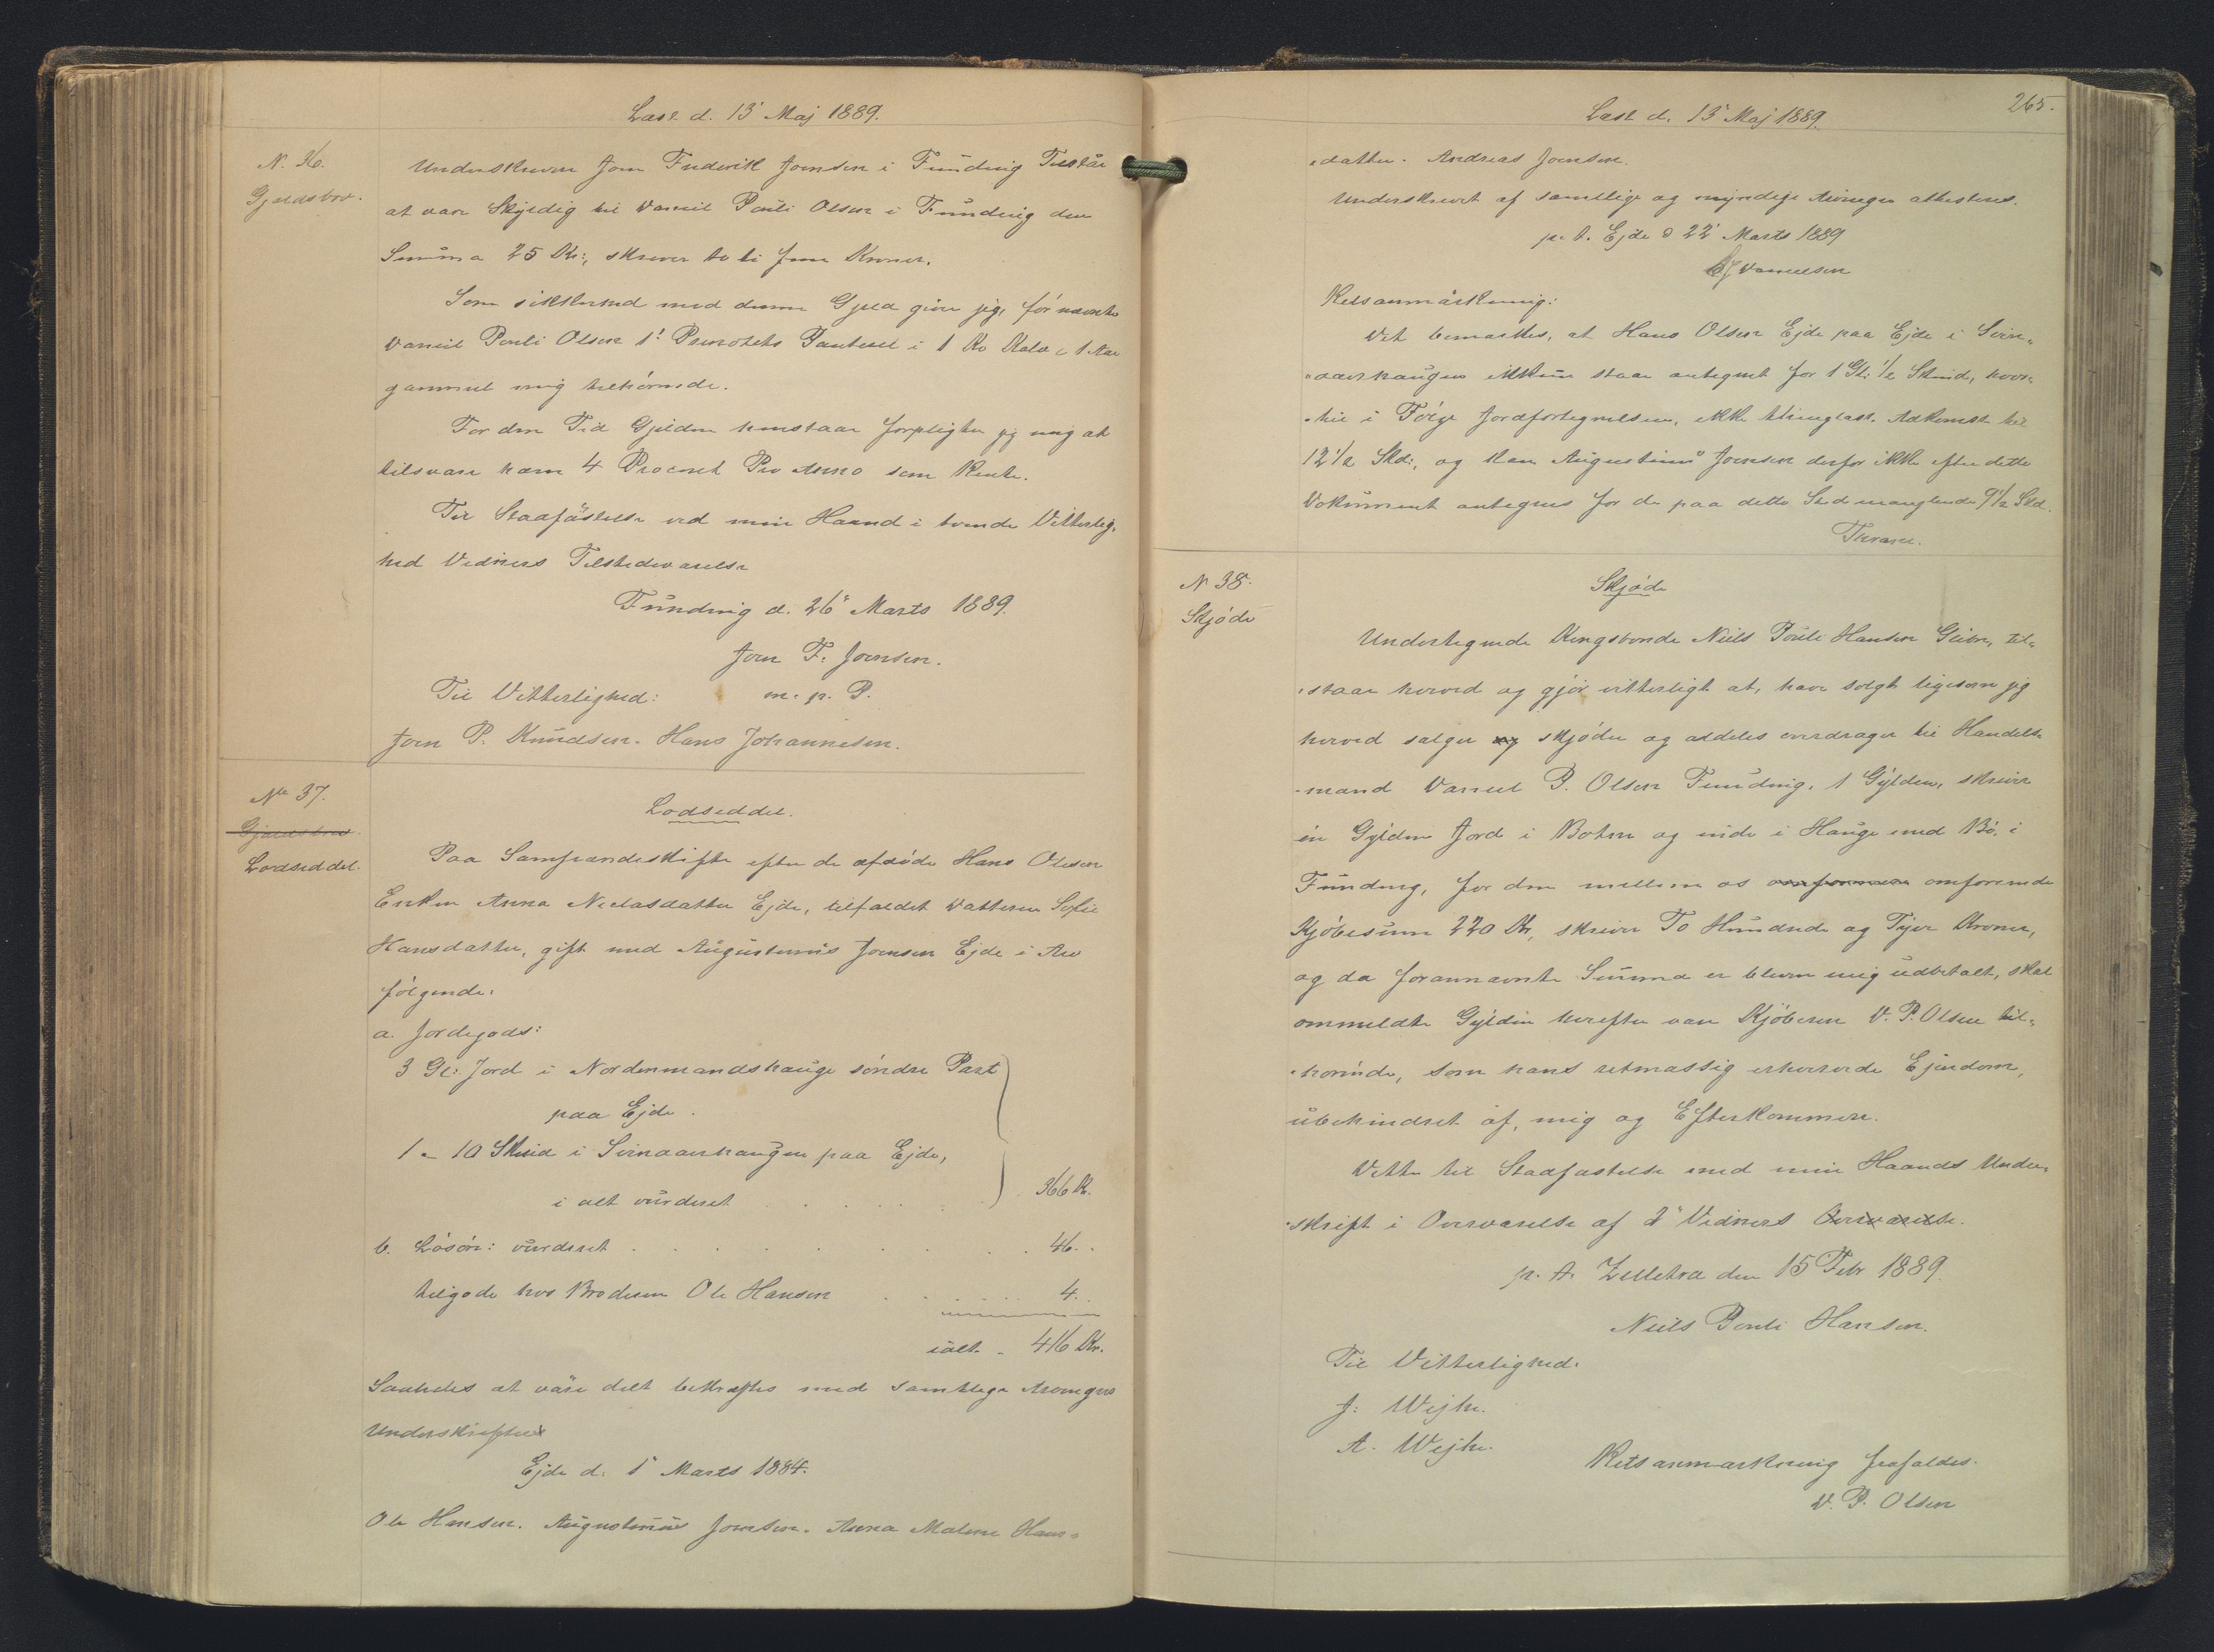 Læst d. 13' Maj 1889.
N. 36.
Gjældsbrev.
Underskreven Joen Frederik Joensen i Funding Tilstår
at være Skyldig til Daniel Pouli Olsen i Funding den
Summa 25 Kr:, skriver tu ti fem Kroner.
Som sikkerhed med denne Gjæld giver jeg, før nævnte
Daniel Pouli Olsen 1' Prioritets Panteret i 1 Ko Kalv, 1 Aar
gammel mig tilhørende.
For den Tid Gjelden henstaar forpligter jeg mig at
tilsvare ham 4 Procent Pro Anno som Rente.
Til Stadfästelse ved min Haand i tvende Vitterlig-
hed Vidners Tilstedeværelse
Funding d. 26' Marts 1889.
Joen F. Joensen.
Til Vitterlighed: m. p. P.
Joen P. Knudsen. Hans Johannesen.
No 37.
Gjældsbrev
Lodseddel.
Lodseddel.
Paa Samfrændeskifte efter de afdøde Hans Olesen
Enken Anna Neclasdatter Ejde, tilfaldt Datteren Sofie
Hansdatter, gift med Augustinus Joensen Ejde i Arv
følgende:
a. Jordegods:
3 Gl: Jord i Nordenmandshauge søndre Part
paa Ejde.
1 - 10 Skind i Svinaarhaugen paa Ejde,
i alt vurderet . . . . . . 366 Kr.
b. Løsøre: vurderet . . . . . . . . 46 . .
tilgode hos Broderen Ole Hansen . . . . . 4. .
ialt - 416 Kr.
Saaledes at være delt bekræftes med samtlige Arvingers
Underskrifter
Ejde d. 1' Marts 1884.
Ole Hansen. Augustinus Joensen. Anna Malene Hans-
Læst d. 13' Maj 1889.
265.
-datter. Andreas Joensen.
Underskrevet af samtlige og myndige Arvinger attesteres.
p. t. Ejde d 22' Marts 1889
Danielsen
Retsanmärkning:
Det bemærkes, at Hans Olsen Ejde paa Ejde i Svin-
-aarhaugen ikkun staar antegnet for 1 Gl: 1/2 Skind, hvor-
-til i Følge Jordfortegnelsen, ikke tinglæst Adkomst til
12 1/2 Skd:, og kan Augustinus Joensen derfor ikke efter dette
Dokument antegnes for de paa dette Sted manglende 9 1/2 Skd.
Thrane.
N 38.
Skjøde
Skjøde
Undertegnede Kongsbonde Niels Pouli Hansen Gibre, til-
-staar herved og gjör vitterligt at, have solgt ligesom jeg
herved sælger og skjøder og aldeles overdrager til Handels-
-mand Daniel P. Olsen Funding, 1 Gylden, skriver
én Gylden Jord i Botnen og inde i Hauge med Bø. i
Funding, for den mellem os omforenede
Kjøbesum 220 Kr, skriver To Hundrede og Tyve Kroner,
og da forannævnte Summa er bleven mig udbetalt, skal
ommeldte Gylden herefter være Kjøberen D. P. Olsen til-
-hørende, som hans retmæssig erhvervede Ejendom,
ubehindret af, mig og Efterkommere.
Dette til Stadfæstelse med min Haands Under-
-skrift i Overværelse af 2' Vidners Overværelse.
p. t. Zelletra den 15 Febr 1889.
Niels Pouli Hansen.
Til Vitterlighed.
J: Wejhe.
A. Wejhe.
Retsanmærkning frafaldes.
D. P. Olsen